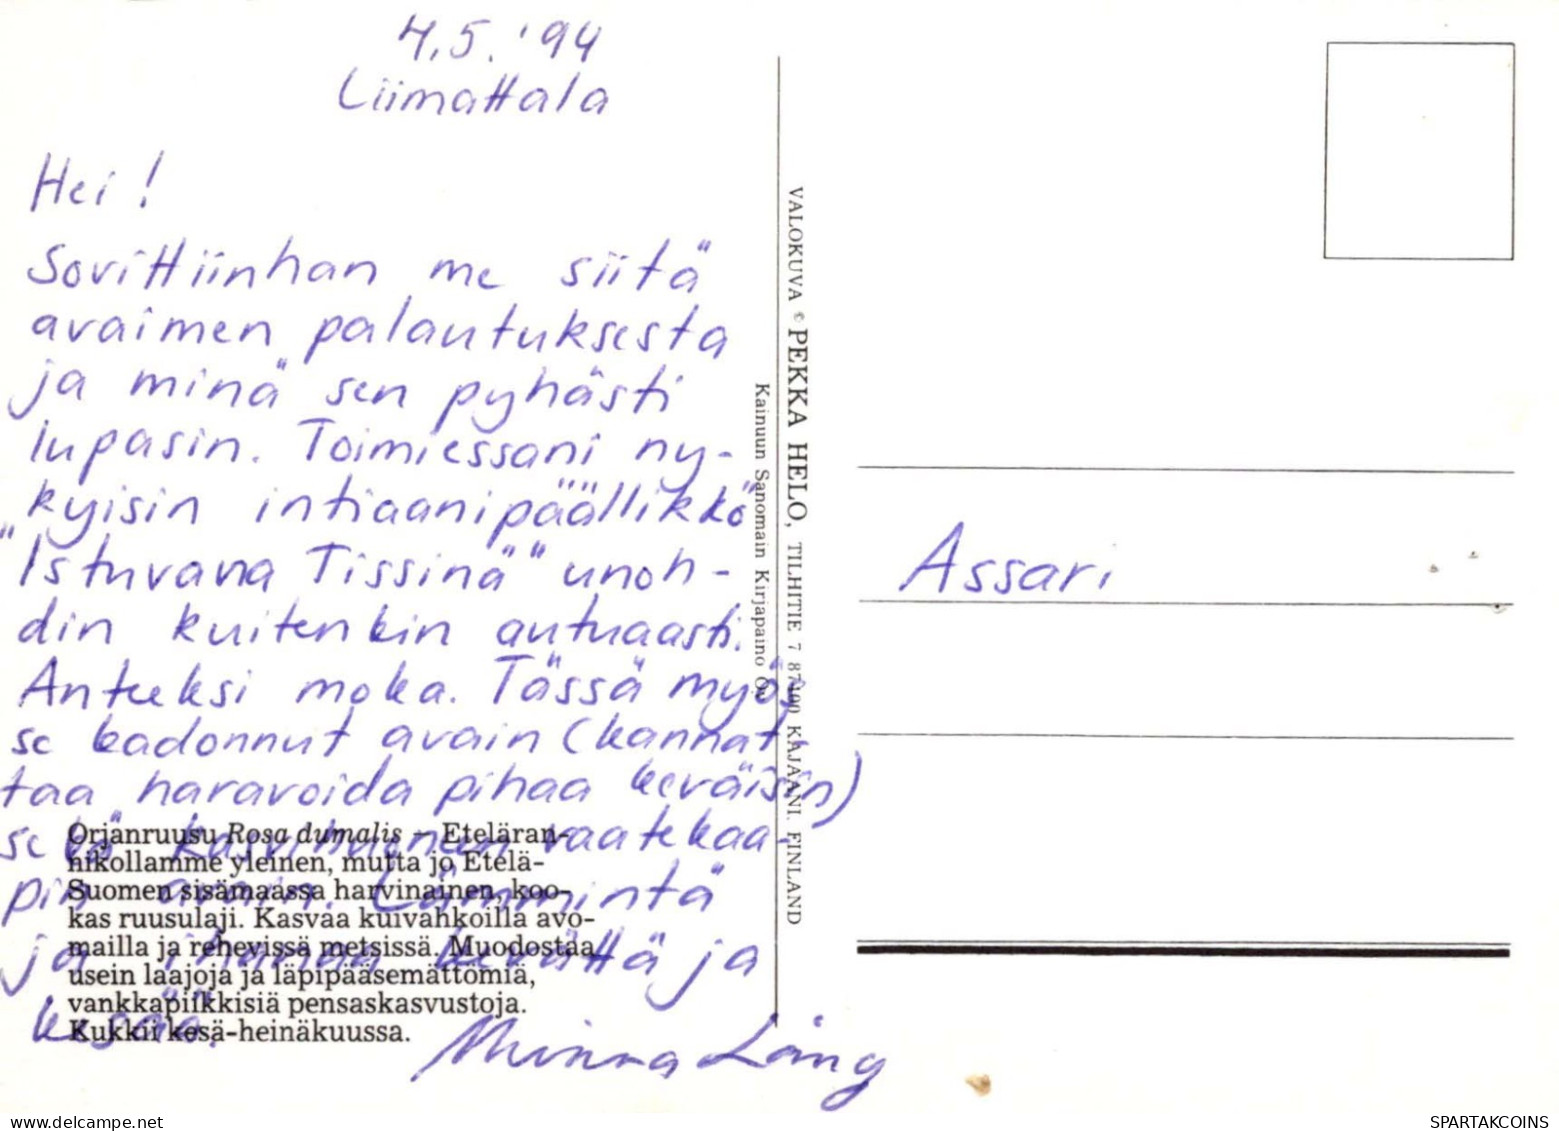 4.5. '94
Liimattala
Hei!
Sovittiinhan me siitä
avaimen palautuksesta
ja minä sen pyhästi
lupasin. Toimiessani ny-
kyisin intiaanipäällikkö
"Istuvana Tissinä" unoh-
din kuitenkin autuaasti.
Anteeksi moka. Tässä myös
se kadonnut avain (kannat-
taa haravoida pihaa keväisin)
sekä kasvihuoneen vaatekaa-
pin avain. Lämmintä
ja ihanaa kevättä ja
kesää.
Minna Lång
Orjanruusu Rosa dumalis — Eteläran-
nikollamme yleinen, mutta jo Etelä-
Suomen sisämaassa harvinainen, koo-
kas ruusulaji. Kasvaa kuivahkoilla avo-
mailla ja rehevissä metsissä. Muodostaa
usein laajoja ja läpipääsemättömiä,
vankkapiikkisiä pensaskasvustoja.
Kukkii kesä-heinäkuussa.
VALOKUVA © PEKKA HELO, TILHITIE 7 87400 KAJAANI. FINLAND
Kainuun Sanomain Kirjapaino Oy
Assari
SPARTAKCOINS